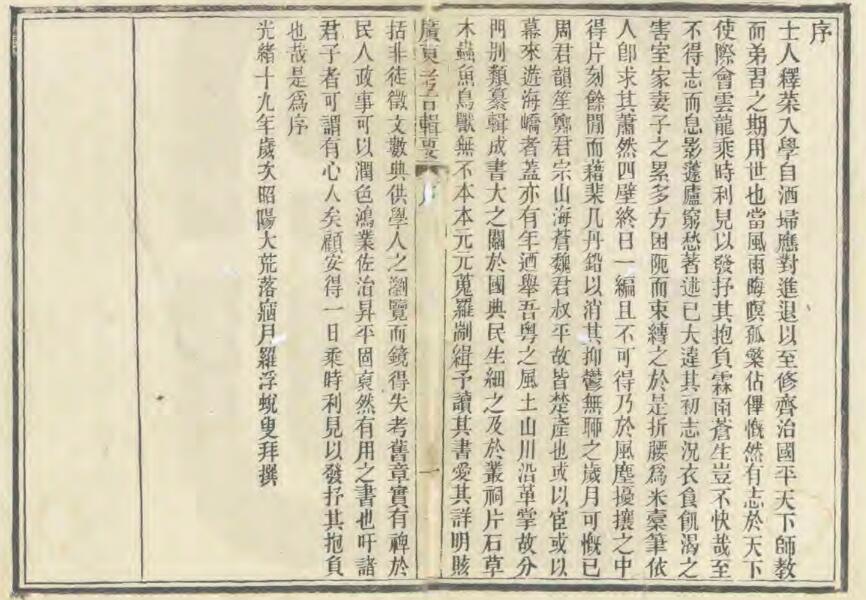 序
士人釋菜入學自洒埽應對進退以至修齊治國平天下師教
而弟習之期用世也當風雨晦暝孤檠佔俾慨然有志於天下
使際會雲龍乘時利見以發抒其抱負霖雨蒼生豈不快哉至
不得志而息影蓬廬窮愁著述已大違其初志況衣食飢渴之
害室家妻子之累多方困阨而束縛之於是折腰爲米橐筆依
人卽求其蕭然四壁終日一編且不可得乃於風塵擾攘之中
得片刻餘閒而藉棐几丹鉛以消其抑鬱無聊之歲月可慨已
周君韻笙鄭君宗山海蒼魏君叔平故皆楚產也或以宦或以
幕來遊海嶠者蓋亦有年迺舉吾粵之風土山川沿革掌故分
門別類纂輯成書大之關於國典民生細之及於叢祠片石草
木蟲魚鳥獸無不本本元元蒐羅剬緝予讀其書愛其詳明賅
廣東考古輯要 序 一
括非徒徵文數典供學人之瀏覽而鏡得失考舊章實有裨於
民人政事可以潤色鴻業佐治昇平固裒然有用之書也吁諸
君子者可謂有心人矣顧安得一日乘時利見以發抒其抱負
也哉是爲序
光緒十九年歲次昭陽大荒落寎月羅浮蛻叟拜撰